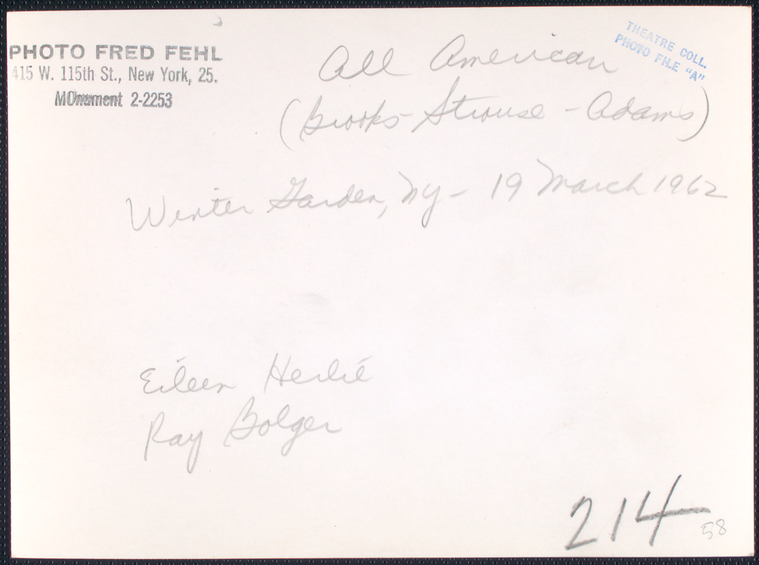 PHOTO FRED FEHL
415 W. 115th St., New York, 25.
MOnument 2-2253
THEATRE COLL.
PHOTO FILE "A"
All American
(Brooks - Strouse - Adams)
Winter Garden, NY - 19 March 1962
Eileen Herlie
Ray Bolger
214
58